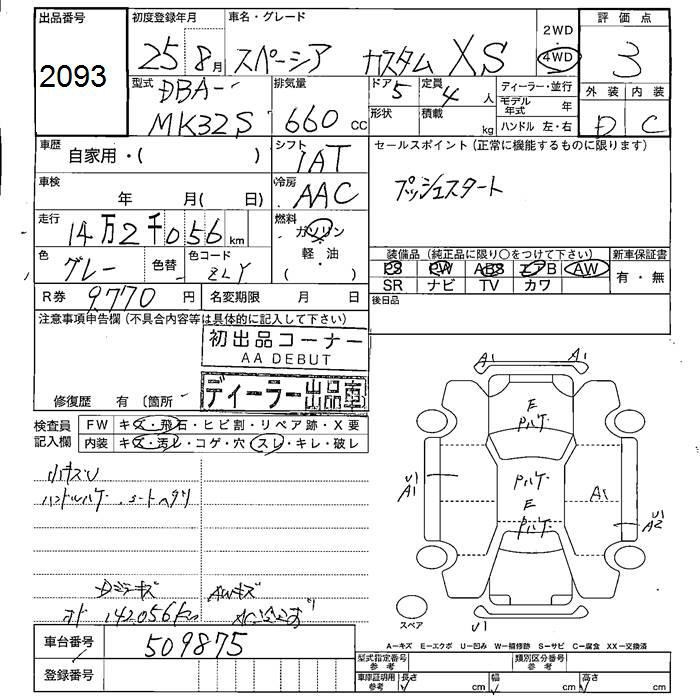 出品番号
2093
初度登録年月
25 8月
車名・グレード
スペーシア カスタム XS
2WD
4WD
評価点
3
外装 内装
D C
型式
DBA-
MK32S
排気量
660 CC
ドア
5
定員
4 人
形状
積載
kg
ディーラー・並行
モデル年式 年
ハンドル 左・右
車歴
自家用・( )
シフト
IAT
セールスポイント(正常に機能するものに限ります)
プッシュスタート
車検
年 月( 日)
冷房
AAC
走行
14万2千056 km
燃料
ガソリン
軽・油
( )
色
グレー
色替
色コード
ZLY
装備品(純正品に限り○をつけて下さい)
PS PW ABS エアB AW
SR ナビ TV カワ
新車保証書
有・無
R券 9,770 円
名変期限 月 日
後日品
注意事項申告欄(不具合内容等は具体的に記入して下さい)
初出品コーナー
AA DEBUT
ディーラー出品車
修復歴 有(箇所
検査員
記入欄
FW キズ・飛石・ヒビ割・リペア跡・X要
内装 キズ・汚レ・コゲ・穴 スレ・キレ・破レ
小キズU
ハンドルハゲ、シートヘタリ
Dミラーキズ AWキズ
オド 142056km
A1 A1
E
Pハゲ
Pハゲ
E
Pハゲ
U1
A1
A1
U1
A2
U1
スペア
車台番号
509875
登録番号
A―キズ E―エクボ U―凹み W―補修跡 S―サビ C―腐食 XX―交換済
型式指定番号
参考
類別区分番号
参考
車庫証明用
参考
長さ cm
幅 cm
高さ cm